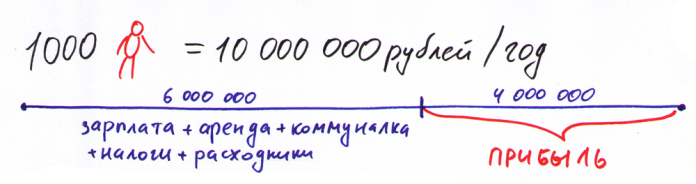 1000 = 10 000 000 рублей / год
6 000 000 4 000 000
зарплата + аренда + коммуналка
+ налоги + расходники
ПРИБЫЛЬ